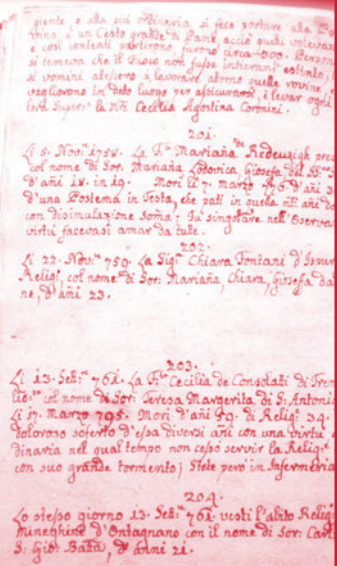 piente, e alla sini ordineria si fece portare alla Por
vino, è un Cesto grande di Pane acciò quei volevan
e così contenti partirono, furono circa 600. Person
si temeva che il fuoco non fusse intieram.te estinto,
ri uomini atesero à lavorare atorno quelle rovine,
vegliorono in deto luogo per assicurarsi, è levar ogni
lora Super.ra la M.re Cecilia Agostina Coronini.
201.
Li 5. Nov.re 1758. La F.la Mariana de Redeusigh prec
col nome di Sor: Mariana Lodovica, Gioseffa del SS.mo S
d'ani 18. in 19. Morì li 7. marzo 776. d'ani 3
d'una Postema in Testa, che patì in quella m.ti ani do
con disimulazione soma; Fu singolare nell'Osservan
virtù facevasi amar da tute.
202.
Li 22. Nov.re 759. La Sig.ra Chiara Fontani d'
Relig.e, col nome di Sor: Mariana, Chiara, Gioseffa dal
ne, d'ani 23.
203.
Li 13. Seti.re 761. La F.la Cecilia de Consolati di Tren
lig.e col nome di Sor: Teresa Margerita di S: Antonio
Li 17. marzo 795. Morì d'ani 59. di Relig.e 34.
doloroso soferto d'essa diversi ani con una virtù
dinaria nel qual tempo non cessò servir la Relig.e
con suo grande tormento; Stete però in Infermeria
204.
Lo stesso giorno 13. Seti.re 761. vestì l'abito Relig
mineghine d'Ontagnano con il nome di Sor: Carl
S: Gio: Batta, d'anni 21.